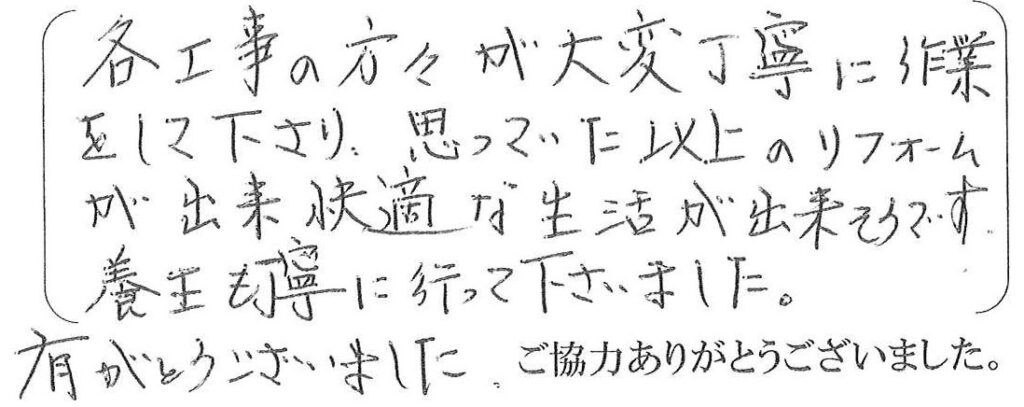 各工事の方々が大変丁寧に作業
をして下さり、思っていた以上のリフォーム
が出来快適な生活が出来そうです.
養生も丁寧に行って下さいました。
有がとうございました. ご協力ありがとうございました。